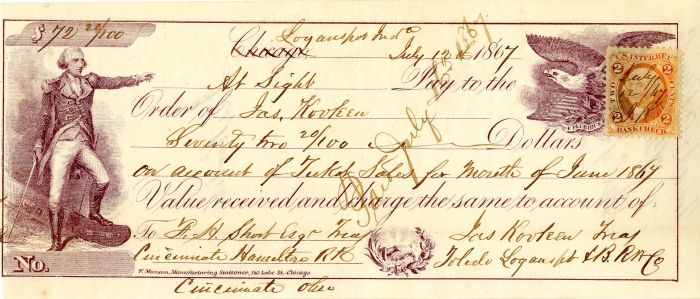 $72 20/100
Logansport Ind^a
Chicago, July 12 1867
At Sight Pay to the
Order of Jas. Kooken
Seventy two 20/100 Dollars
on account of Ticket Sales for Month of June 1867
Value received and charge the same to account of
To F. H. Short Esqr Treas Jas Kooken Treas
Cincinnati Hamilton RR Toledo Logansport & B. RW Co
No.
F. Munson, Manufacturing Stationer, 140 Lake St. Chicago
Cincinnati Ohio
July 1867
U.S. INTER. REV.
2 2
TWO CENTS
July
12/67
2 2
BANK CHECK